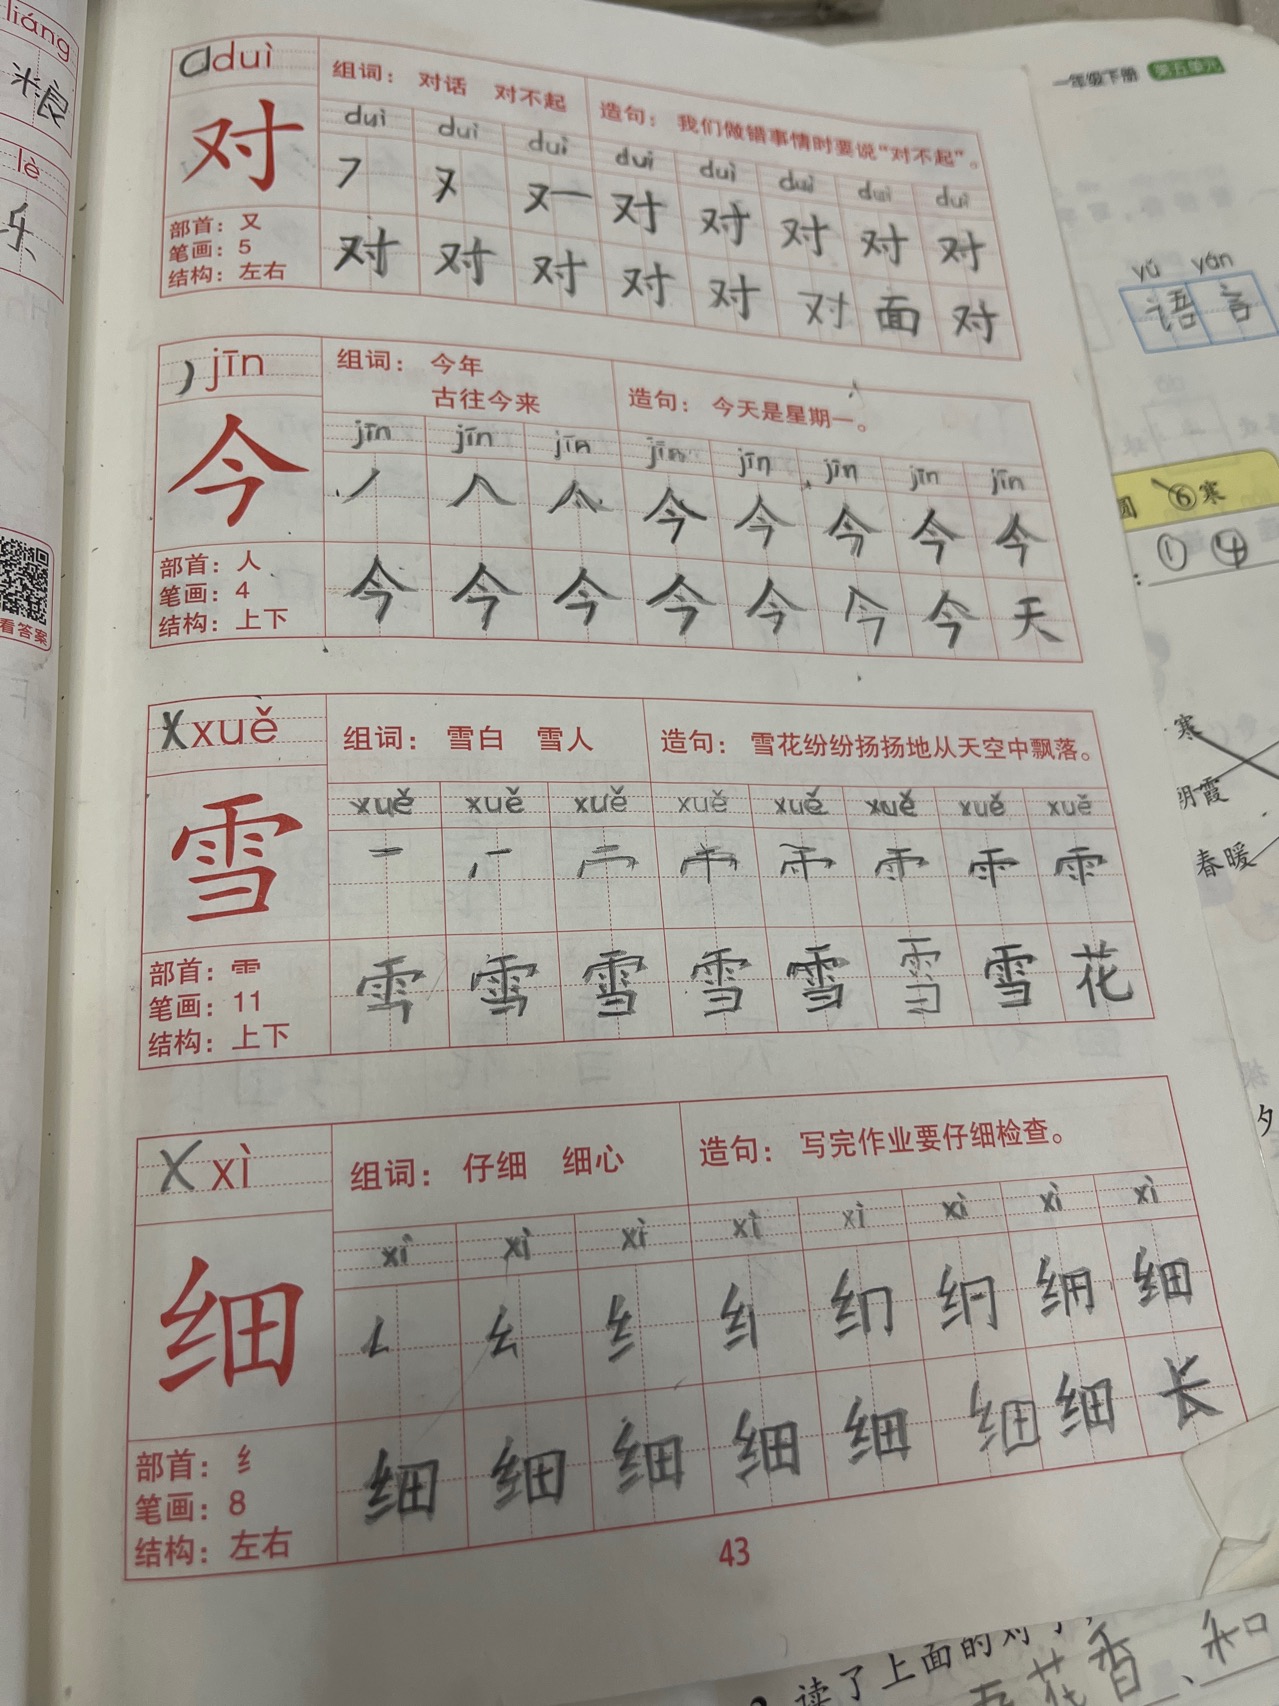 liáng
粮
lè
乐
看答案
d duì
组词： 对话 对不起
造句： 我们做错事情时要说“对不起”。
对
duì duì duì duì duì duì duì duì
对 对 对 对 对
部首：又
笔画：5
结构：左右
对 对 对 对 对 对 面 对
jīn
组词： 今年
古往今来
造句： 今天是星期一。
今
jīn jīn jīn jīn jīn jīn jīn jīn
丿 人 亽 今 今 今 今 今
部首：人
笔画：4
结构：上下
今 今 今 今 今 今 今 天
x xuě
组词： 雪白 雪人
造句： 雪花纷纷扬扬地从天空中飘落。
雪
xuě xuě xuě xuě xuě xuě xuě xuě
部首：⻗
笔画：11
结构：上下
雪 雪 雪 雪 雪 雪 花
x xì
组词： 仔细 细心
造句： 写完作业要仔细检查。
细
xì xì xì xì xì xì xì xì
细
部首：纟
笔画：8
结构：左右
细 细 细 细 细 细 细 长
43
一年级下册 第五单元
yǔ yán
语言
圆 ⑥寒
① ④
寒
朝霞
春暖
夕
读了上面的对子，
花香、和